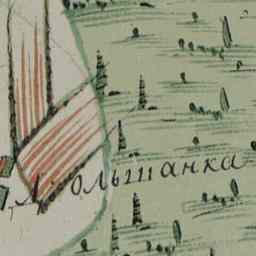 Ольшанка